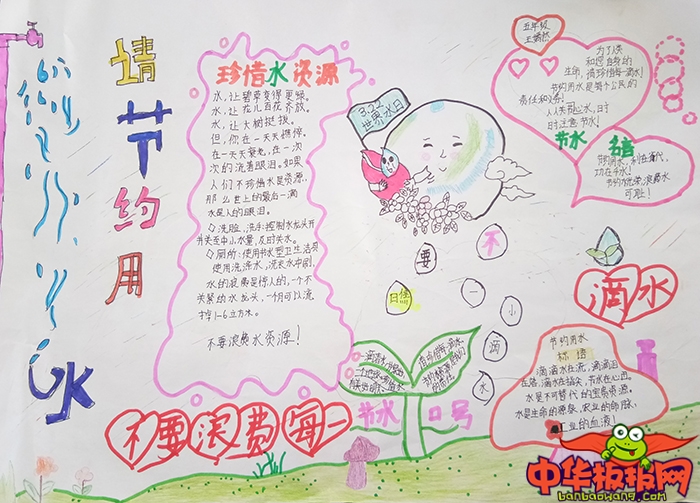 请节约用
水
珍惜水资源
水，让碧草变得更绿。
水，让花儿百花齐放。
水，让大树挺拔。
但，你在一天天憔悴。
在一天天衰老，在一次
次的流着眼泪。如果
人们不珍惜水资源，
那么世上的最后一滴
水是人的眼泪。
◇洗脸、洗手：控制水龙头开
开关至中小水量，及时关水。
◇厕所：使用节水型卫生洁具
水的浪费是惊人的，一个不
关紧的水龙头，一个月可以流
掉1-6立方米。
不要浪费水资源！
3.22
世界水日
五年级
为了你
和您自身的
生命，请珍惜每一滴水！
节约用水是每个公民的
责任和义务；
人人关心水，时
时注意节水！
节水
功在千秋！
可耻！
不
要
小
滴
水
滴水
不要浪费每一
节水
口号
节约用水
标语
滴滴水在流，滴滴泪
水是不可替代的宝贵资源。
水是生命的源泉、农业的命脉、
业的血液！
中华板报网
banbaowang.com